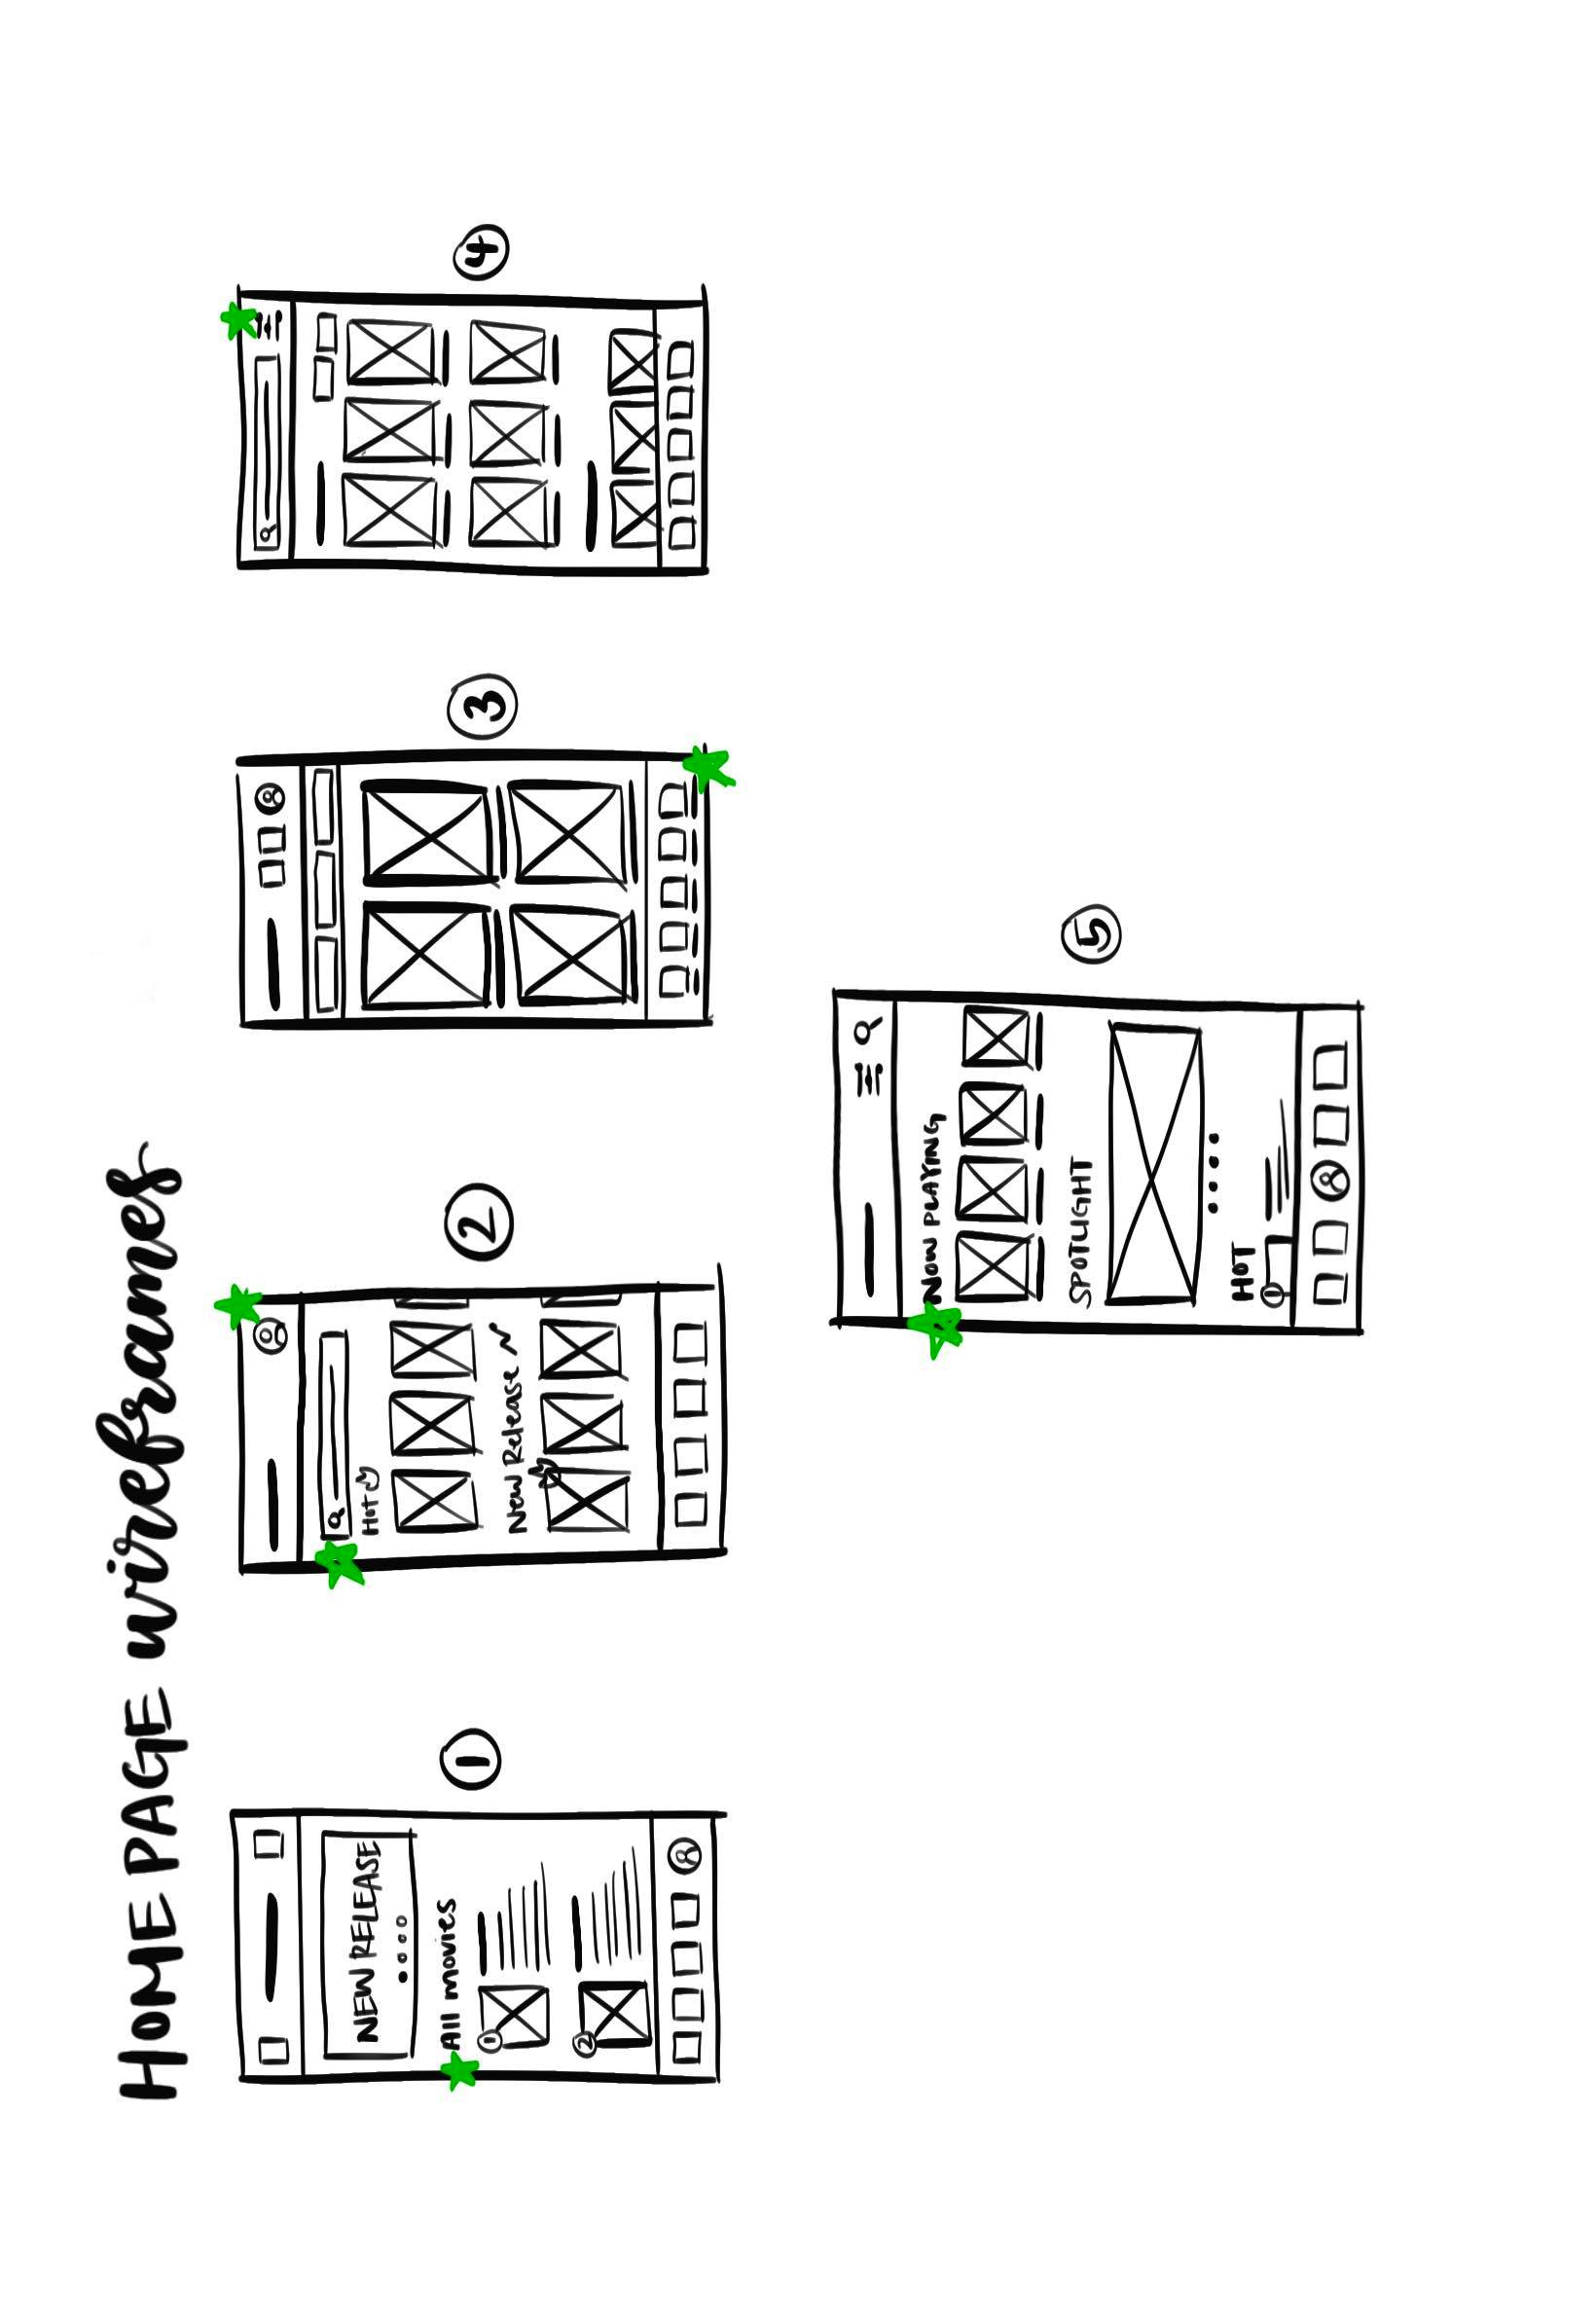 HOME PAGE wireframes
NEW RELEASE
All movies
1
2
1
Hot
New Release
2
3
4
NOW PLAYING
SPOTLIGHT
HOT
1
5